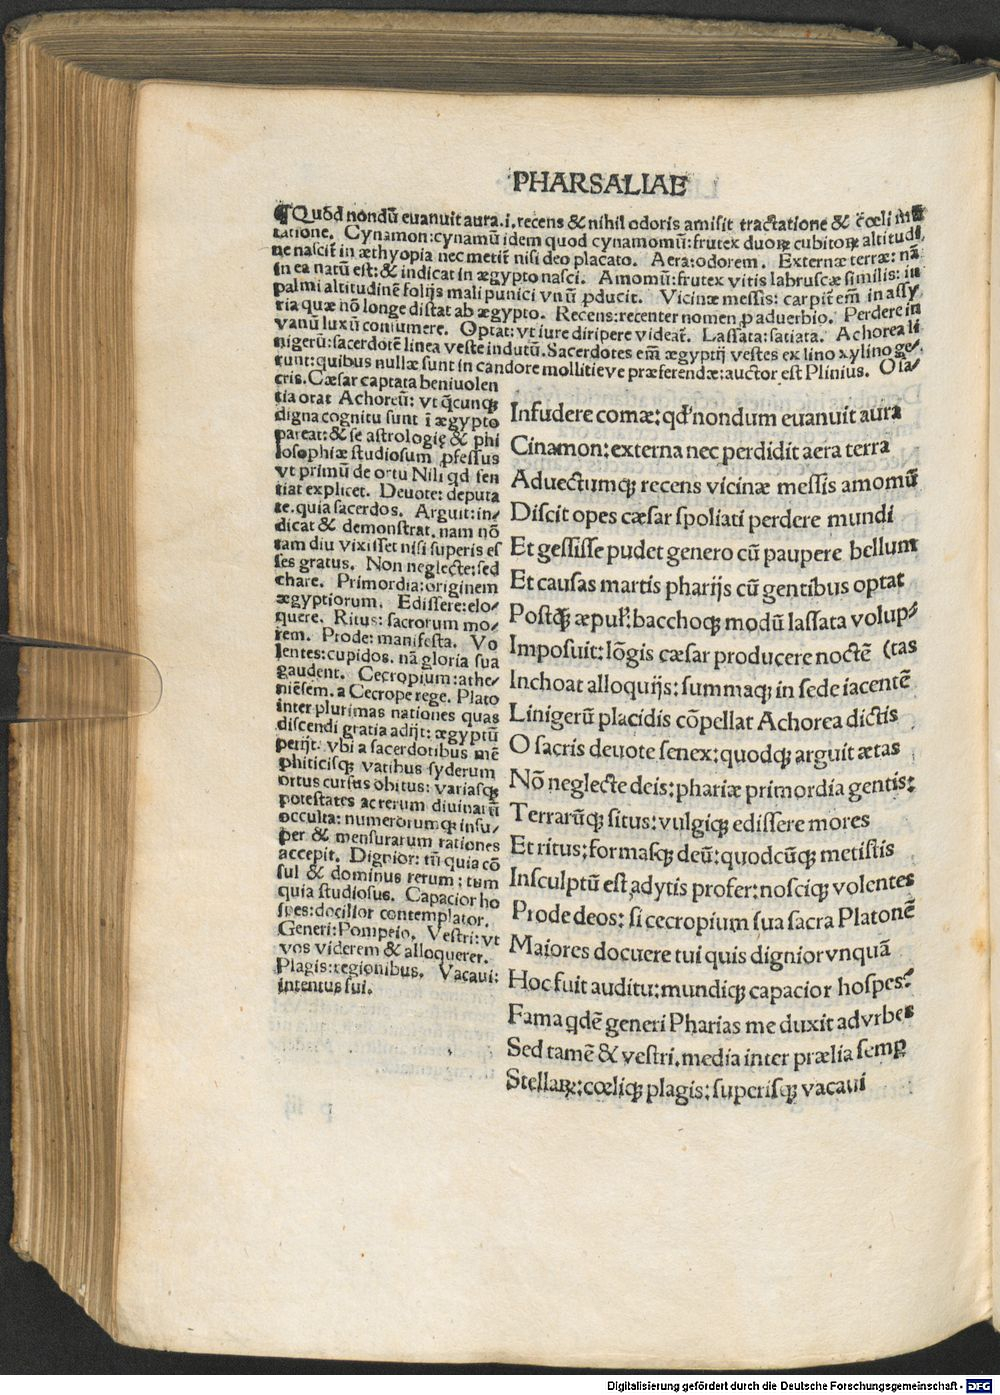 PHARSALIAE
¶Quod nondū euanuit aura.i.recens & nihil odoris amisit tractatione & cœli mu
tatione. Cynamon:cynamū idem quod cynamomū:frutex duoꝝ cubitoꝝ altitudi,
ne nascit̄ in æthyopia nec metit̄ nisi deo placato. Aera:odorem. Externæ terræ: nā
in ea natū est:& indicat in ægypto nasci. Amomū:frutex vitis labruscæ similis: in
palmi altitudinē folijs mali punici vnū ꝓducit. Vicinæ messis: carpit̄ em̄ in assy
ria quæ nō longe distat ab ægypto. Recens:recenter nomen ꝓ aduerbio. Perdere in
vanū luxū consumere. Optat: vt iure diripere videat̄. Lassata:satiata. Achorea li
nigerū:sacerdotē linea veste indutū.Sacerdotes em̄ ægyptij vestes ex lino xylino ge⸗
runt:quibus nullæ sunt in candore mollitieve præferendæ:auctor est Plinius. O sa⸗
cris.Cæsar captata beniuolen
tia orat Achoreū: vt q̄cunqꝫ
digna cognitu sunt ī ægypto
pareat:& se astrologię & phi
losophiæ studiosum ꝓfessus
vt primū de ortu Nili qd sen
tiat explicet. Deuote: deputa
te.quia sacerdos. Arguit:in⸗
dicat & demonstrat.nam nō
tam diu vixisset nisi superis es
ses gratus. Non neglecte:sed
chare. Primordia:originem
ægyptiorum. Edissere:elo⸗
quere. Ritus: sacrorum mo⸗
rem. Prode: manifesta. Vo
lentes:cupidos. nā gloria sua
gaudent. Cecropium:athe⸗
niēsem.a Cecrope rege. Plato
inter plurimas nationes quas
discendi gratia adijt: ægyptū
petijt. vbi a sacerdotibus mē
phiticisqꝫ vatibus syderum
ortus cursus obitus: variasqꝫ
potestates ac rerum diuinarū
occulta: numerorumqꝫ insu⸗
per & mensurarum rationes
accepit. Dignior: tū quia cō
sul & dominus rerum : tum
quia studiosus. Capacior ho
spes:docilior contemplator.
Generi:Pompeio. Vestri:vt
vos viderem & alloquerer.
Plagis:regionibus. Vacaui:
intentus fui.
Infudere comæ: qd' nondum euanuit aura
Cinamon: externa nec perdidit aera terra
Aduectumqꝫ recens vicinæ messis amomū
Discit opes cæsar spoliati perdere mundi
Et gessisse pudet genero cū paupere bellum
Et causas martis pharijs cū gentibus optat
Postq̄ꝫ æpul' bacchoqꝫ modū lassata volup⸗
Imposuit: lōgis cæsar producere noctē (tas
Inchoat alloquijs: summaqꝫ in sede iacentē
Linigerū placidis cōpellat Achorea dictis
O sacris deuote senex: quodqꝫ arguit ætas
Nō neglecte deis: phariæ primordia gentis:
Terrarūqꝫ situs: vulgiqꝫ edissere mores
Et ritus: formasqꝫ deū: quodcūqꝫ metistis
Insculptū est adytis profer: nosciqꝫ volentes
Prode deos: si cecropium sua sacra Platonē
Maiores docuere tui quis dignior vnquā
Hoc fuit auditu: mundiqꝫ capacior hospes?
Fama qdē generi Pharias me duxit ad vrbes
Sed tamē & vestri. media inter prælia semꝑ
Stellaꝝ: cœliqꝫ plagis: superisqꝫ vacaui
Digitalisierung gefördert durch die Deutsche Forschungsgemeinschaft - DFG